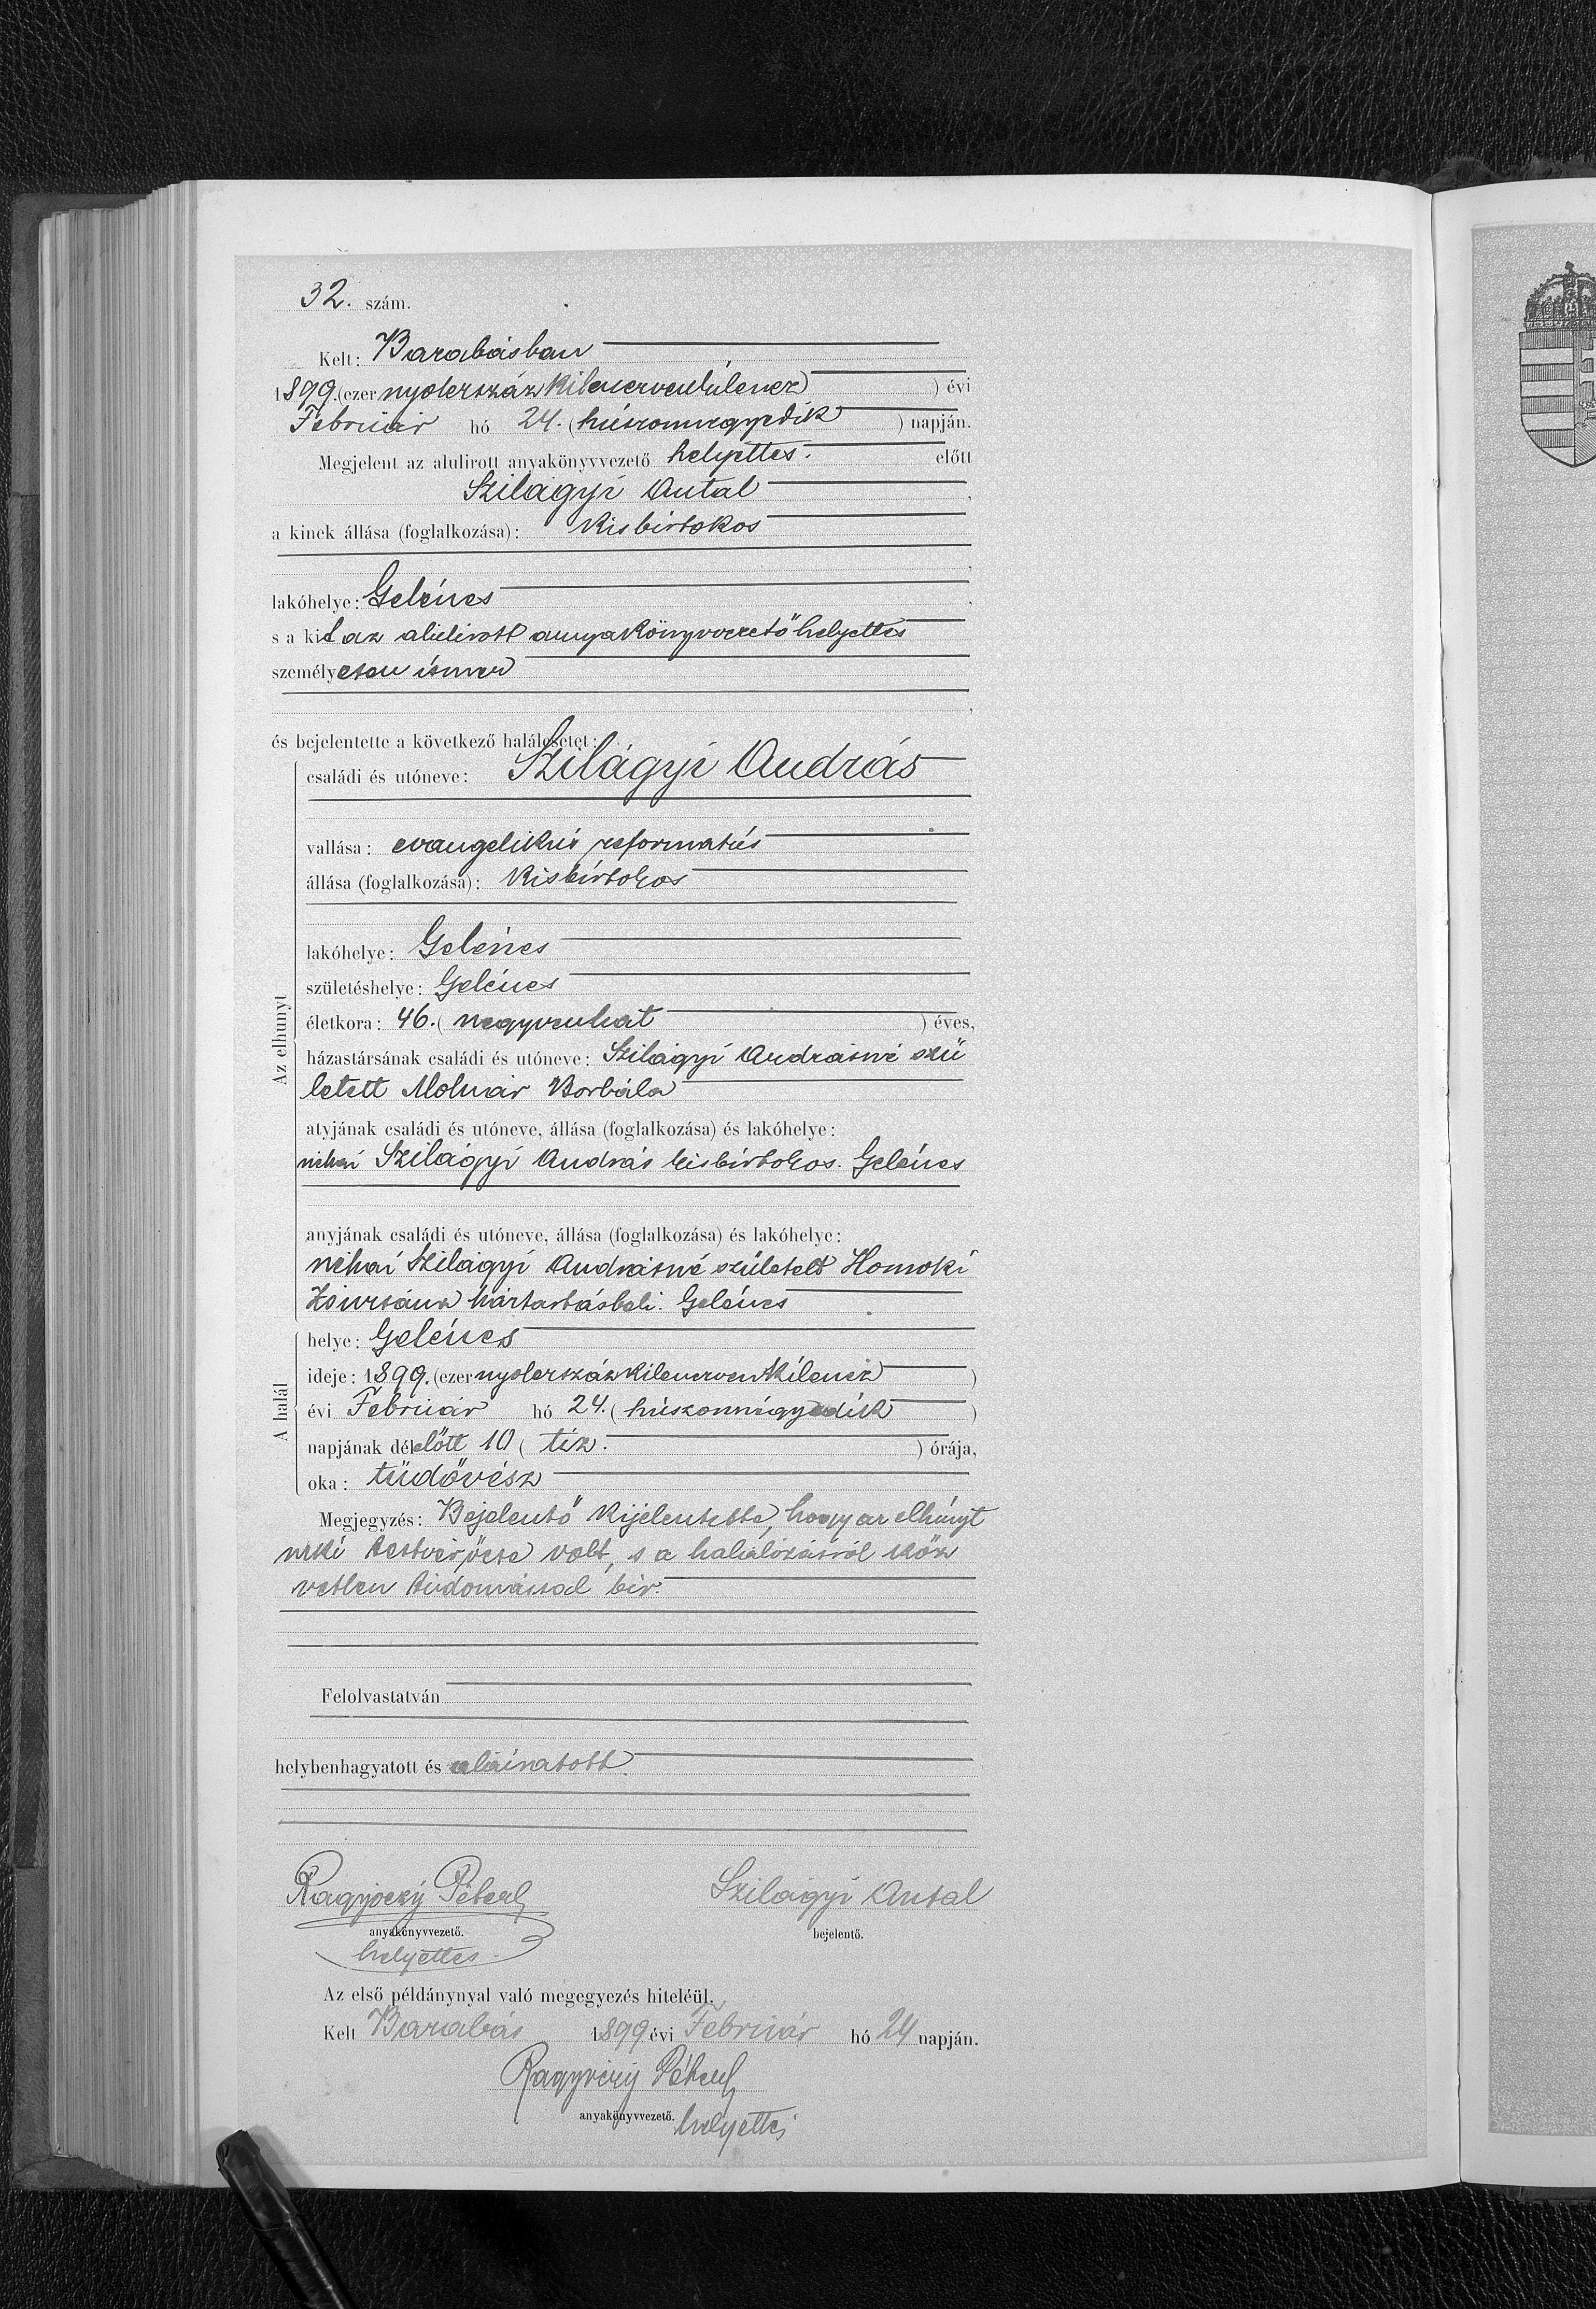 32. szám.
Kelt: Barabásban
1899. (ezer nyolcszáz kilencvenkilencz) évi
Február hó 24. (húszonnegyedik) napján.
Megjelent az alulirott anyakönyvvezető helyettes. előtt
Szilágyi Antal,
a kinek állása (foglalkozása): Kisbirtokos
,
lakóhelye: Gelénes,
s a kit az alulirott anyakönyvvezető helyettes
személyesen ismer
,
és bejelentette a következő halálesetet:
Az elhunyt
családi és utóneve: Szilágyi András
vallása: evangelikus reformatus
állása (foglalkozása): Kisbirtokos
lakóhelye: Gelénes
születéshelye: Gelénes
életkora: 46. (negyvenhat) éves,
házastársának családi és utóneve: Szilágyi Andrásné szü
letett Molnár Borbála
atyjának családi és utóneve, állása (foglalkozása) és lakóhelye:
néhai Szilágyi András kisbirtokos. Gelénes
anyjának családi és utóneve, állása (foglalkozása) és lakóhelye:
néhai Szilágyi Andrásné született Homoki
Zsuzsána háztartásbeli. Gelénes
A halál
helye: Gelénes
ideje: 1899. (ezer nyolcszáz kilencvenkilencz)
évi Február hó 24. (húszonnegyedik)
napjának délelőtt 10 (tíz.) órája,
oka: tüdővész
Megjegyzés: Bejelentő kijelentette, hogy az elhúnyt
neki testvéröcse volt, s a halálozásról köz
vetlen tudomással bir.
Felolvastatván
helybenhagyatott és aláíratott.
Szilágyi Antal
anyakönyvvezető. bejelentő.
helyettes.
Az első példánynyal való megegyezés hiteléül.
Kelt Barabás 1899 évi Február hó 24 napján.
anyakönyvvezető. helyettes